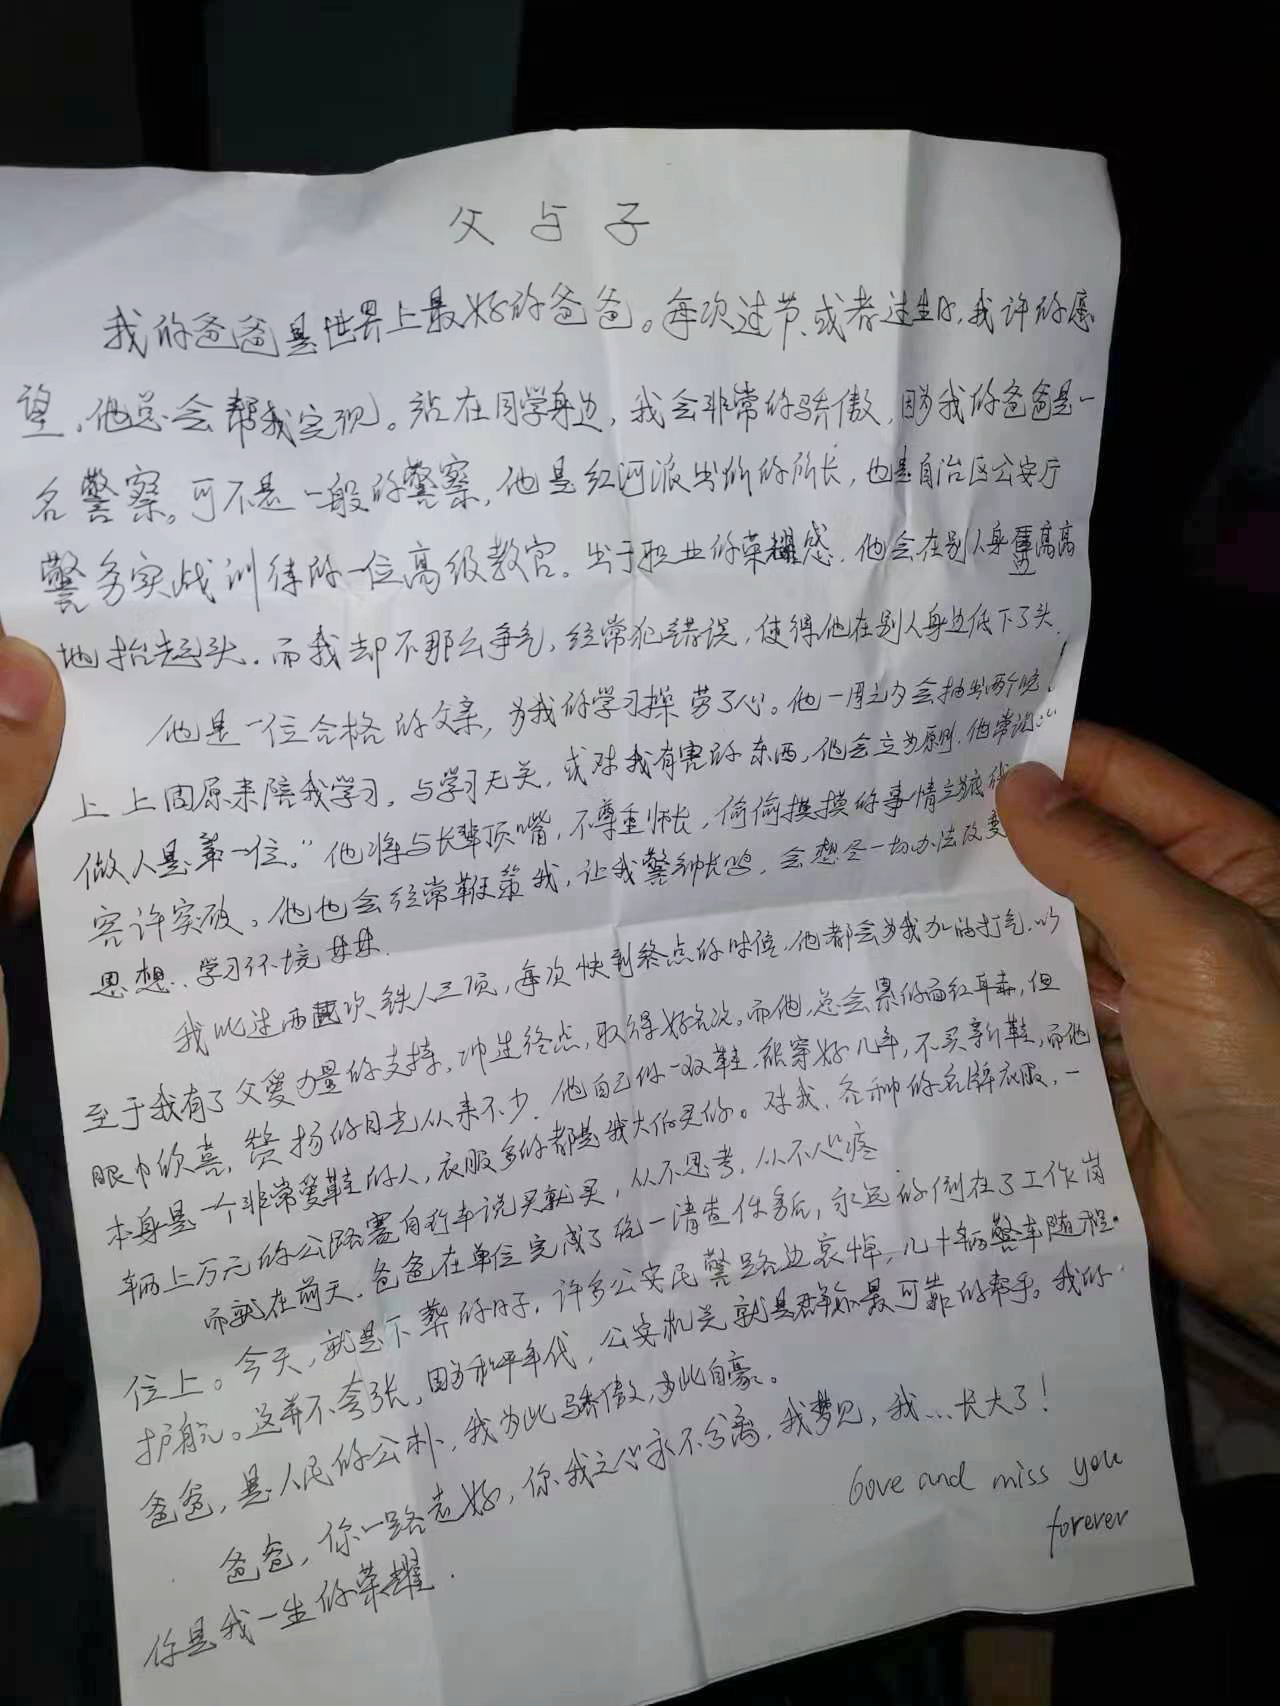 父与子
我的爸爸是世界上最好的爸爸。每次过节、或者过生日,我许的愿
望,他总会帮我实现。站在同学身边,我会非常的骄傲,因为我的爸爸是一
名警察。可不是一般的警察,他是红河派出所的所长,也是自治区公安厅
警务实战训练的一位高级教官。出于职业的荣耀感,他会在别人身边高高
地抬起头。而我却不那么争气,经常犯错误,使得他在别人身边低下了头。
他是一位合格的父亲,为我的学习操劳了心。他一周之内会抽出两个晚
上上固原来陪我学习,与学习无关,或对我有害的东西,他会立为原则,他常说:“
做人是第一位。”他将与长辈顶嘴,不尊重师长,偷偷摸摸的事情立为底线
容许突破。他也会经常鞭策我,让我警钟长鸣,会想尽一切办法改变
思想、学习环境
我比过两次铁人三项,每次快到终点的时候,他都会为我加油打气,以
至于我有了父爱力量的支持,冲过终点,取得好名次。而他,总会累的面红耳赤,但
眼中的欣喜,赞扬的目光从来不少。他自己的一双鞋,能穿好几年,不买新鞋,而他
本身是一个非常爱鞋的人,衣服多的都是我大伯买的。对我,各种的名牌衣服,一
辆上万元的公路赛自行车说买就买,从不思考,从不心疼
而就在前天,爸爸在单位完成了统一清查任务后,永远的倒在了工作岗
位上。今天,就是下葬的日子,许多公安民警路边哀悼,几十辆警车随程
护航。这并不夸张,因为和平年代,公安机关就是群众最可靠的帮手。我的
爸爸,是人民的公朴,我为此骄傲,为此自豪。
爸爸,你一路走好,你我之心永不分离,我梦见,我…长大了!
你是我一生的荣耀.
Love and miss you
forever